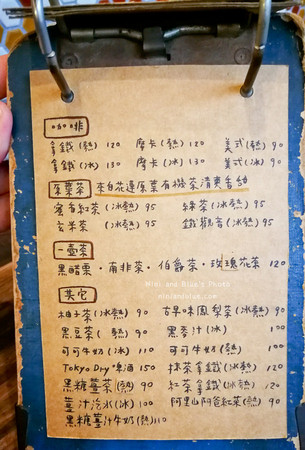 咖啡
拿鐵(熱) 120 摩卡(熱) 120 美式(熱) 90
拿鐵(冰) 130 摩卡(冰) 130 美式(冰) 90
原葉茶 來自花蓮原葉有機茶清爽香甜
蜜香紅茶(冰熱) 95 綠茶(冰熱) 95
玄米茶 (冰熱) 95 鐵觀音(冰熱) 95
一壺茶
黑醋栗·南非茶·伯爵茶·玫瑰花茶 120
Mini and Blue's Photo
miniandblue.com
其它
柚子茶(冰熱) 90 古早味鳳梨茶(冰熱) 90
黑豆茶( 熱) 90 黑麥汁(冰) 100
可可牛奶(冰) 110 可可牛奶(熱) 100
Tokyo Dry啤酒 150 抹茶拿鐵(冰熱) 120
黑糖薑茶(熱) 90 紅茶拿鐵(冰熱) 120
薑汁汽水(冰) 100 阿里山阿爸紅茶(熱) 90
黑糖薑汁牛奶(熱) 110